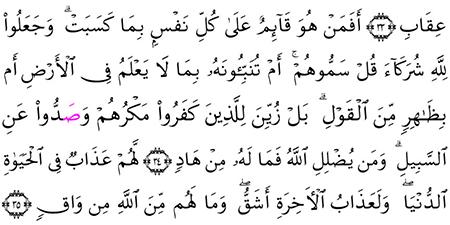 عِقَابِ ۝٣٣ أَفَمَنْ هُوَ قَآئِمٌ عَلَىٰ كُلِّ نَفْسٍۭ بِمَا كَسَبَتْ ۗ وَجَعَلُوا۟
لِلَّهِ شُرَكَآءَ قُلْ سَمُّوهُمْ ۚ أَمْ تُنَبِّـُٔونَهُۥ بِمَا لَا يَعْلَمُ فِى ٱلْأَرْضِ أَم
بِظَـٰهِرٍۢ مِّنَ ٱلْقَوْلِ ۗ بَلْ زُيِّنَ لِلَّذِينَ كَفَرُوا۟ مَكْرُهُمْ وَصَدُّوا۟ عَنِ
ٱلسَّبِيلِ ۗ وَمَن يُضْلِلِ ٱللَّهُ فَمَا لَهُۥ مِنْ هَادٍۢ ۝٣٤ لَّهُمْ عَذَابٌۭ فِى ٱلْحَيَوٰةِ
ٱلدُّنْيَا ۖ وَلَعَذَابُ ٱلْـَٔاخِرَةِ أَشَقُّ ۖ وَمَا لَهُم مِّنَ ٱللَّهِ مِن وَاقٍۢ ۝٣٥